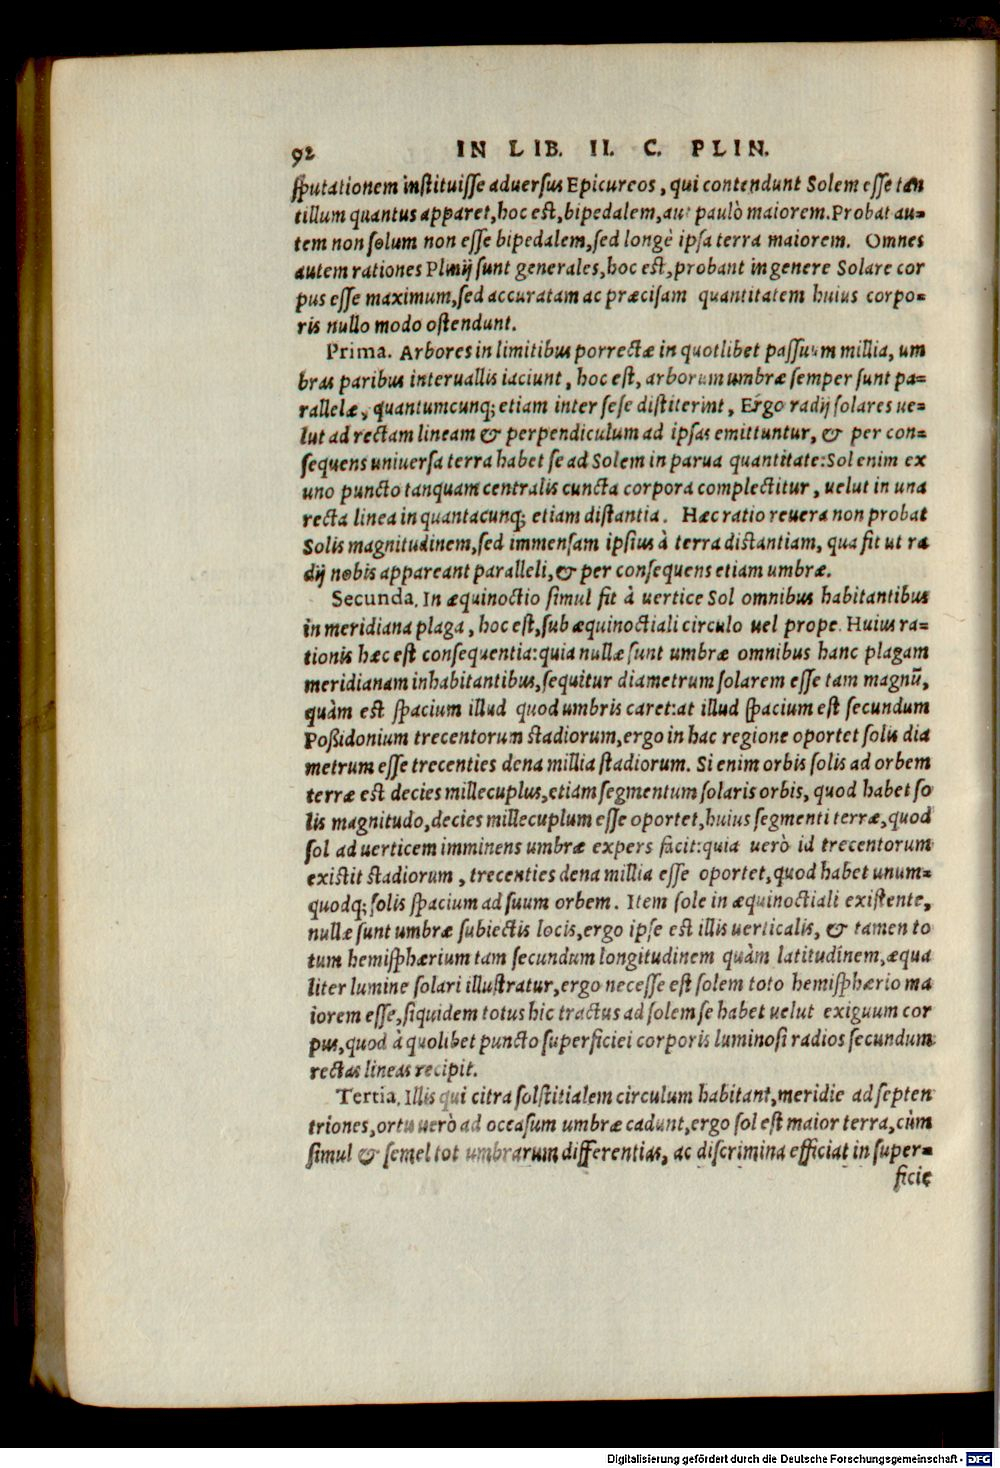 92 IN LIB. II. C. PLIN.
sputationem instituisse aduersus Epicureos, qui contendunt Solem esse tan
tillum quantus apparet, hoc est, bipedalem, aut paulò maiorem. Probat au=
tem non solum non esse bipedalem, sed longè ipsa terra maiorem. Omnes
autem rationes Plinij sunt generales, hoc est, probant in genere Solare cor
pus esse maximum, sed accuratam ac præcisam quantitatem huius corpo=
ris nullo modo ostendunt.
Prima. Arbores in limitibus porrectæ in quotlibet passuum millia, um
bras paribus interuallis iaciunt, hoc est, arborum umbræ semper sunt pa=
rallelæ, quantumcunq; etiam inter sese distiterint, Ergo radij solares ue=
lut ad rectam lineam & perpendiculum ad ipsas emittuntur, & per con=
sequens uniuersa terra habet se ad Solem in parua quantitate: Sol enim ex
uno puncto tanquam centralis cuncta corpora complectitur, uelut in una
recta linea in quantacunq; etiam distantia. Hæc ratio reuera non probat
Solis magnitudinem, sed immensam ipsius à terra distantiam, qua fit ut ra
dij nobis appareant paralleli, & per consequens etiam umbræ.
Secunda. In æquinoctio simul fit à uertice Sol omnibus habitantibus
in meridiana plaga, hoc est, sub æquinoctiali circulo uel prope. Huius ra=
tionis hæc est consequentia: quia nullæ sunt umbræ omnibus hanc plagam
meridianam inhabitantibus, sequitur diametrum solarem esse tam magnũ,
quàm est spacium illud quod umbris caret: at illud spacium est secundum
Poßidonium trecentorum stadiorum, ergo in hac regione oportet solis dia
metrum esse trecenties dena millia stadiorum. Si enim orbis solis ad orbem
terræ est decies millecuplus, etiam segmentum solaris orbis, quod habet so
lis magnitudo, decies millecuplum esse oportet, huius segmenti terræ, quod
sol ad uerticem imminens umbræ expers facit: quia uerò id trecentorum
existit stadiorum, trecenties dena millia esse oportet, quod habet unum=
quodq; solis spacium ad suum orbem. Item sole in æquinoctiali existente,
nullæ sunt umbræ subiectis locis, ergo ipse est illis uerticalis, & tamen to
tum hemisphærium tam secundum longitudinem quàm latitudinem, æqua
liter lumine solari illustratur, ergo necesse est solem toto hemisphærio ma
iorem esse, siquidem totus hic tractus ad solem se habet uelut exiguum cor
pus, quod à quolibet puncto superficiei corporis luminosi radios secundum
rectas lineas recipit.
Tertia. Illis qui citra solstitialem circulum habitant, meridie ad septen
triones, ortu uerò ad occasum umbræ cadunt, ergo sol est maior terra, cùm
simul & semel tot umbrarum differentias, ac discrimina efficiat in super=
ficie
Digitalisierung gefördert durch die Deutsche Forschungsgemeinschaft - DFG